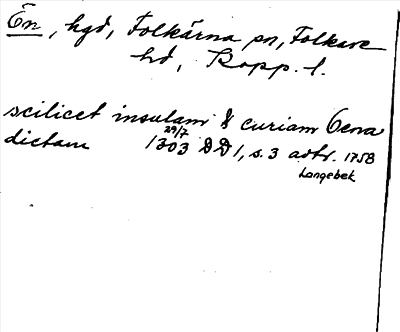 Ön, hgd, Folkärna sn, Folkare
hd, Kopp. l.
scilicet insulam & curiam Oena
dictam 29/7 1303 DD 1, s. 3 avtr. 1758
Langebek